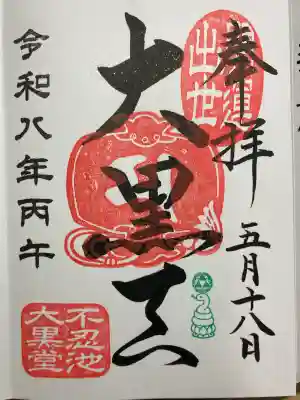 奉拝
五月十八日
出世
大黒天
令和八年丙午
不忍池
大黒堂